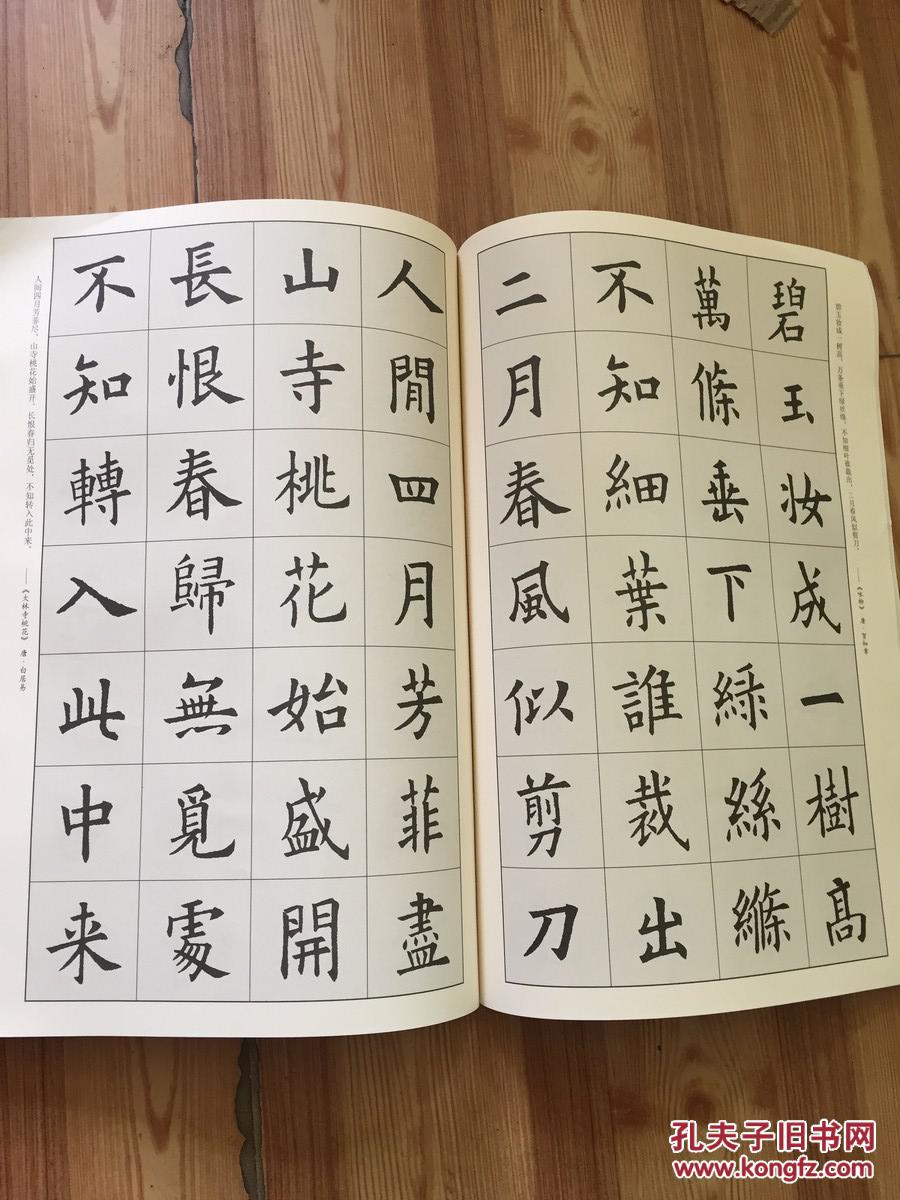 碧玉妆成一樹高
萬條垂下緑絲縧
不知細葉誰裁出
二月春風似剪刀
碧玉妆成一树高，万条垂下绿丝绦。不知细叶谁裁出，二月春风似剪刀。
——《咏柳》 唐·贺知章
人閒四月芳菲盡
山寺桃花始盛開
長恨春歸無覓處
不知轉入此中来
人间四月芳菲尽，山寺桃花始盛开。长恨春归无觅处，不知转入此中来。
——《大林寺桃花》 唐·白居易
孔夫子旧书网
www.kongfz.com